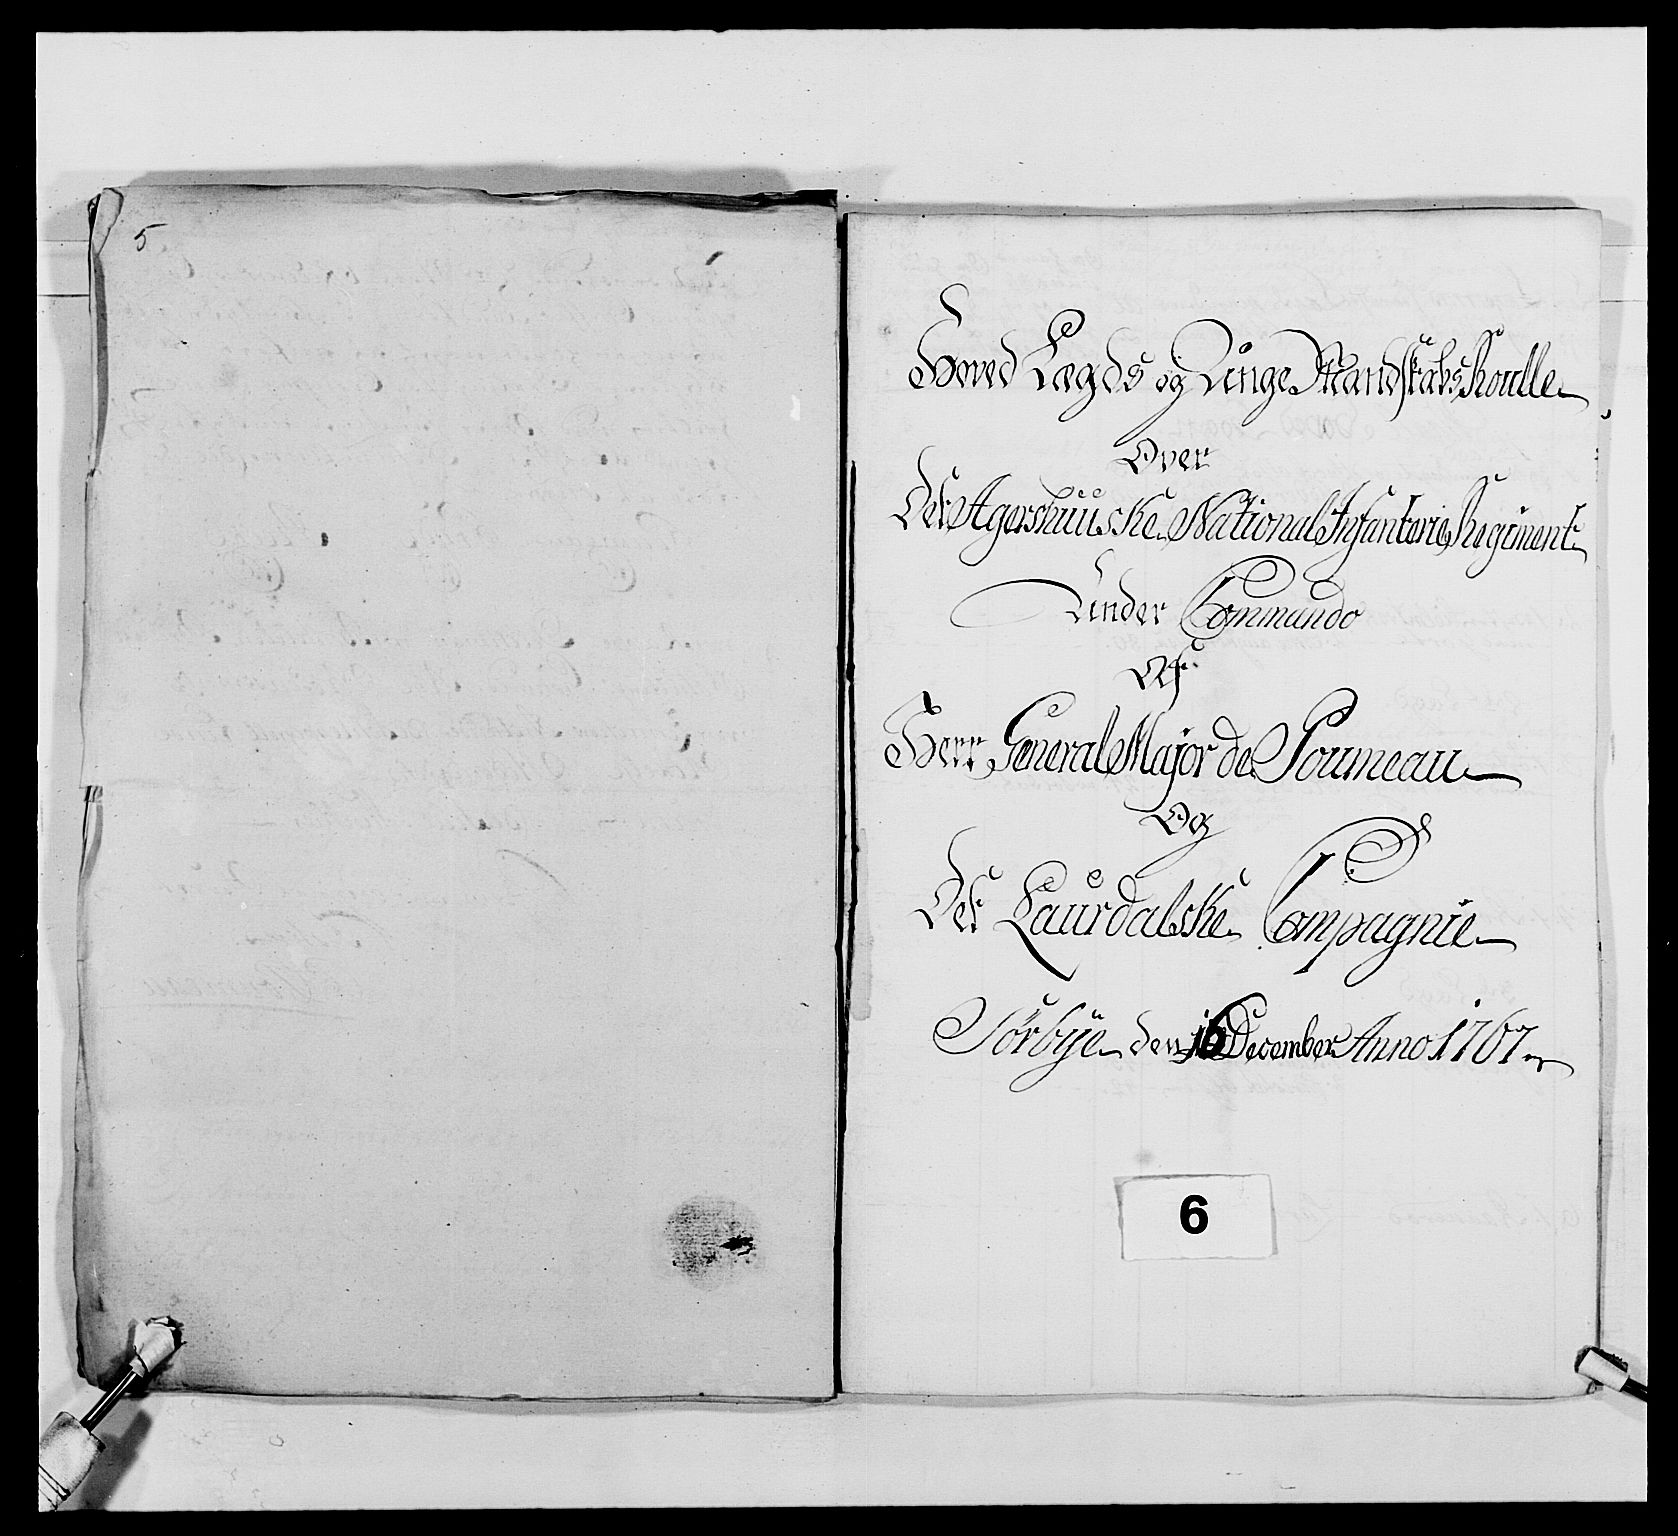 5
Hoved Lægds og Unge Mandskabs Roulle
Over
Det Agershuuske National Infanterie Regiment
Under Commando
Af
Herr General Major de Poumeau
Og
Det Laurdalske Compagnie
Sørbÿe den 16 December Anno 1767
6